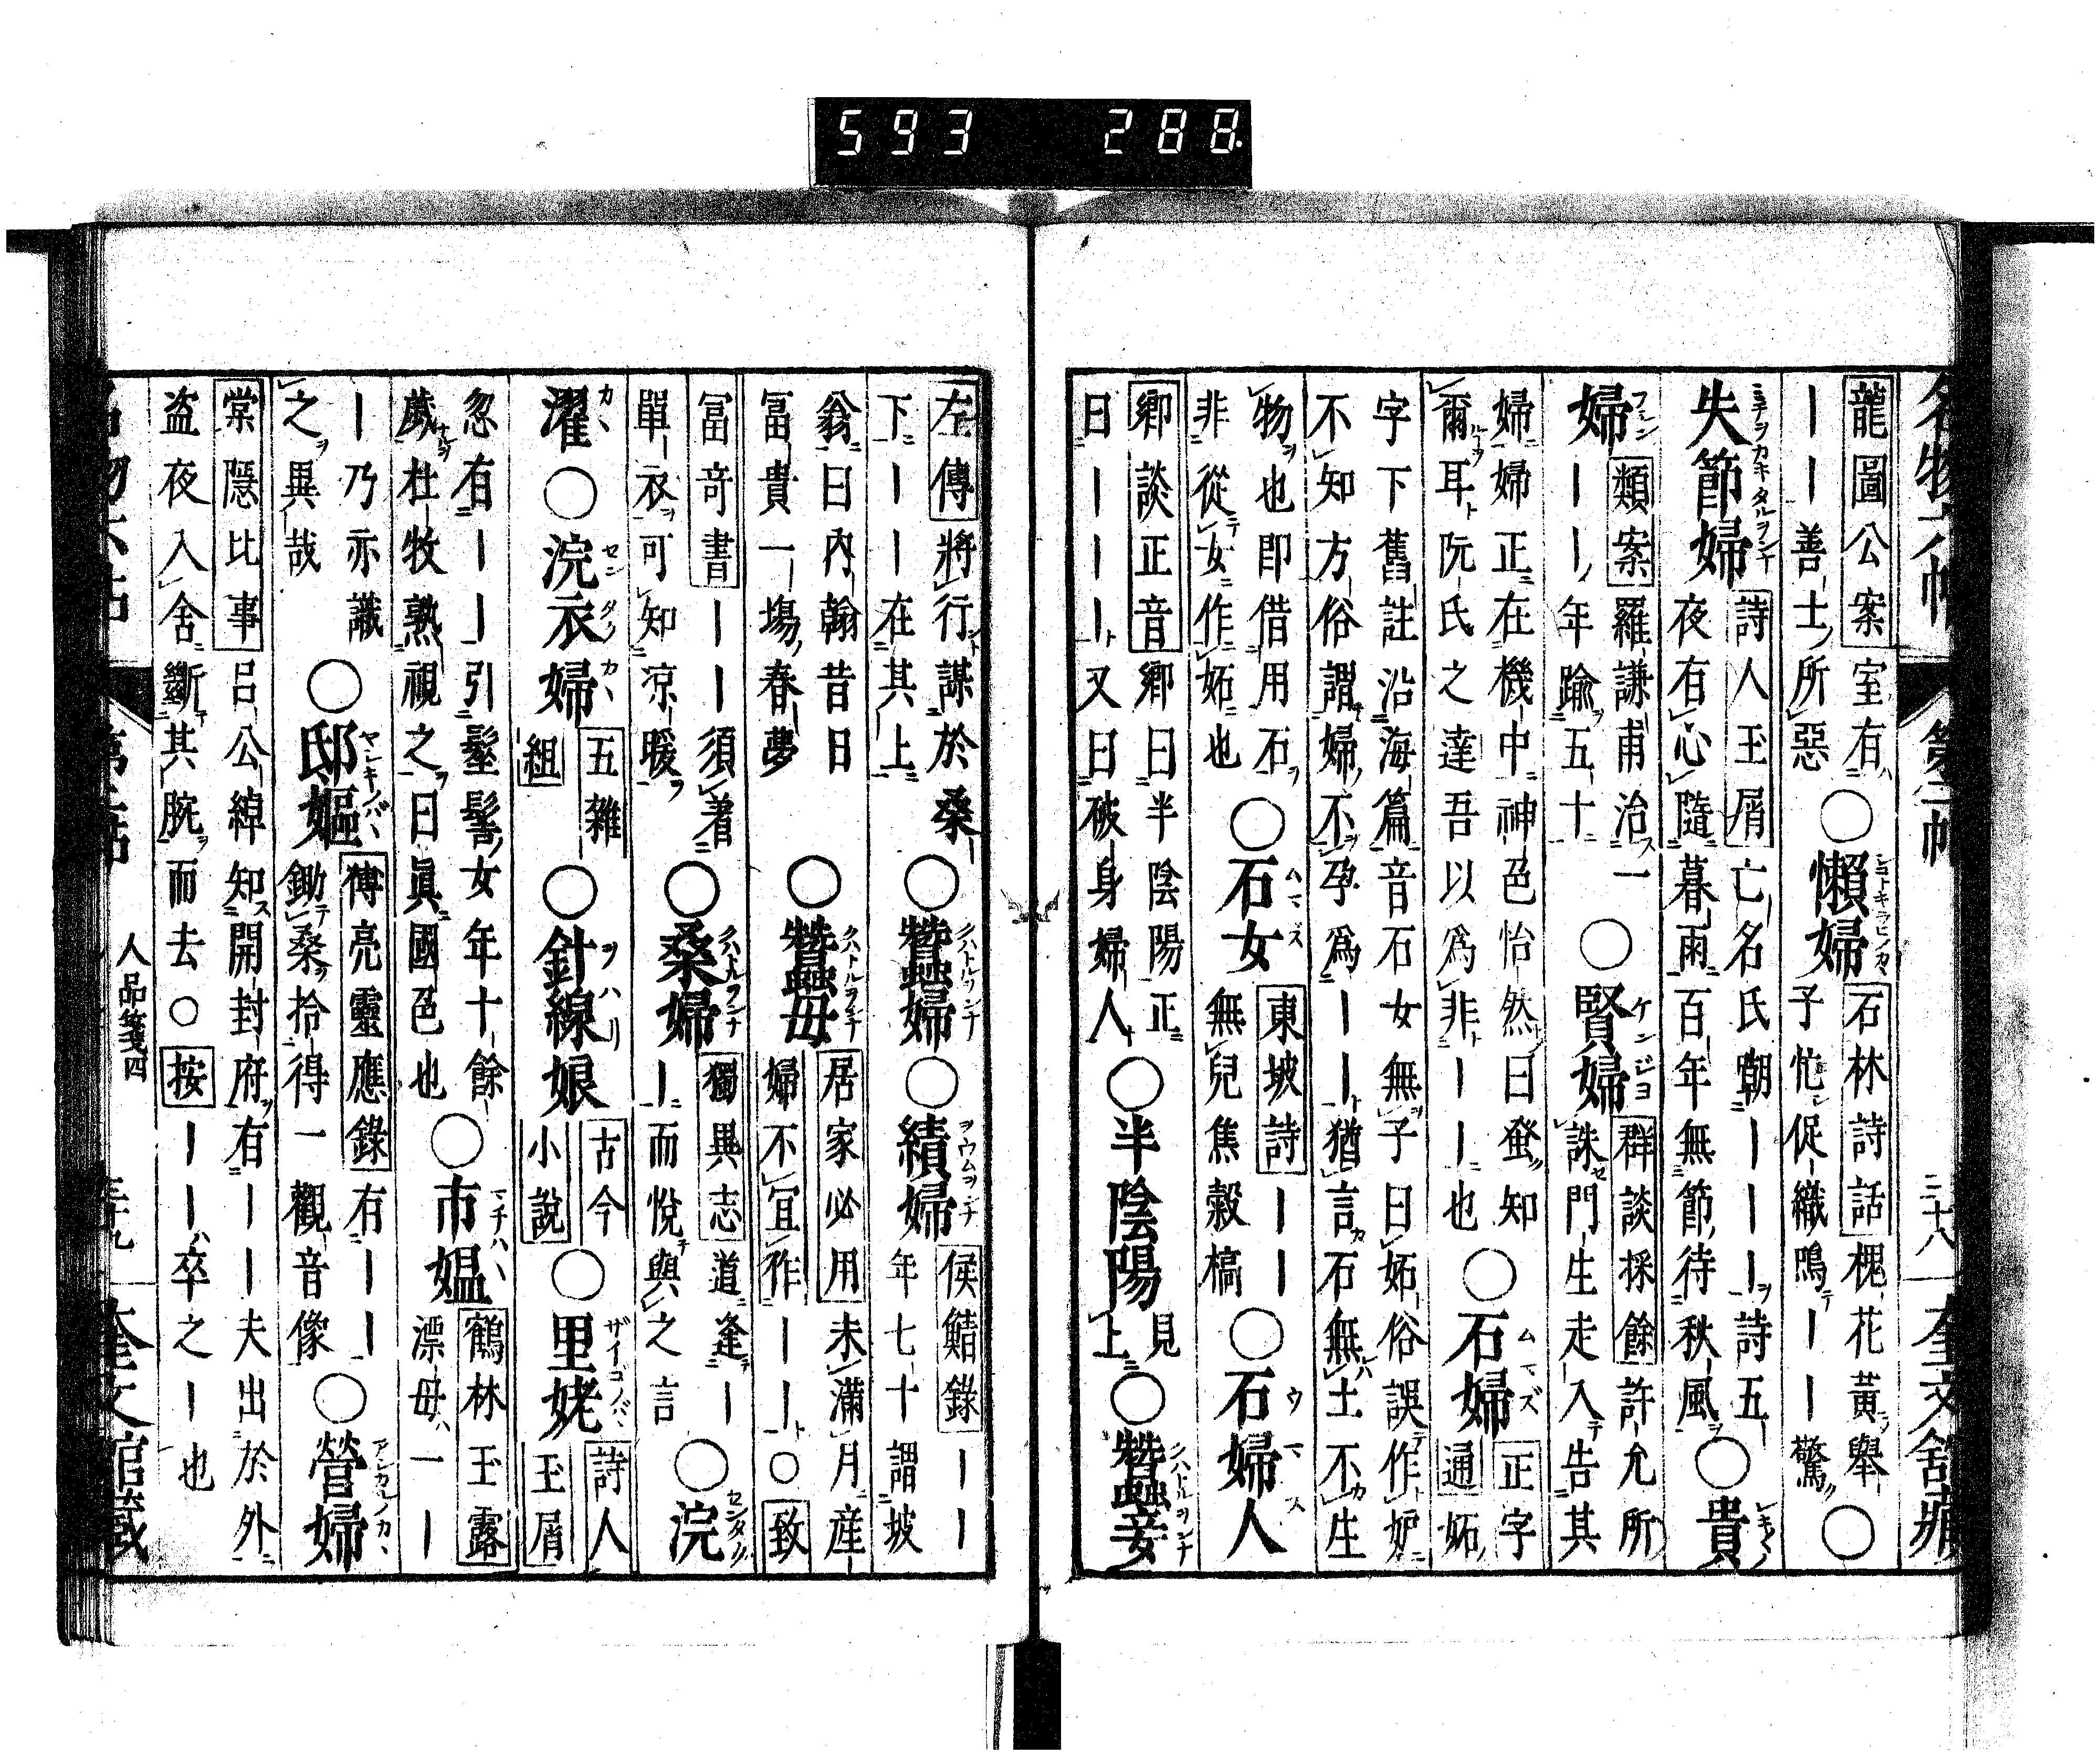 593 288
名物六帖 第二帖 二十八 奎文舘藏
龍圖公案室有
ーー善士所惡
○懶婦
石林詩話槐花黄擧
子忙促織鳴ーー驚
○
失節婦
詩人玉屑亡名氏朝ーーー詩五
夜有心隨暮雨百年無節待秋風
○貴
婦
類案羅謙甫治一
ーー年踰五十
○賢婦
群談採餘許允所
誅門生走入告其
婦婦正在機中神色怡然曰蚤知
爾耳阮氏之達吾以爲非ーー也
○石婦
正字
通妬
字下舊註沿海篇音石女無子曰妬俗誤作妒
不知方俗謂婦不孕爲ーー猶言石無土不生
物也即借用石
非從女作妬也
○石女
東坡詩ーー
無兒焦穀槁
○石婦人
卿談正音卿曰半陰陽正
曰ーーー又曰破身婦人
○半陰陽
見
上
○蠶妾
左傳將行謀於桑
下ーー在其上
○蠶婦○績婦
侯鯖錄ーー
年七十謂坡
翁曰內翰昔日
富貴一塲春夢
○蠶母
居家必用未滿月産
婦不宜作ーー○致
冨奇書ーー須著
單衣可知涼暖
○桑婦
獨異志道逢ー
ー而悅與之言
○浣
濯○浣衣婦
五雜
組
○針線娘
古今
小說
○里姥
詩人
玉屑
忽有ーー引髽髻女年十餘
歲杜牧熟視之曰眞國色也
○市媼
鶴林玉露
漂母一ー
ー乃亦識
之異哉
○邸嫗
傅亮靈應錄有ーー
鋤桑拾得一觀音像
○營婦
棠隱比事呂公綽知開封府有ーー夫出於外
盗夜入舍斷其腕而去○按ーー卒之ー也
人品箋四